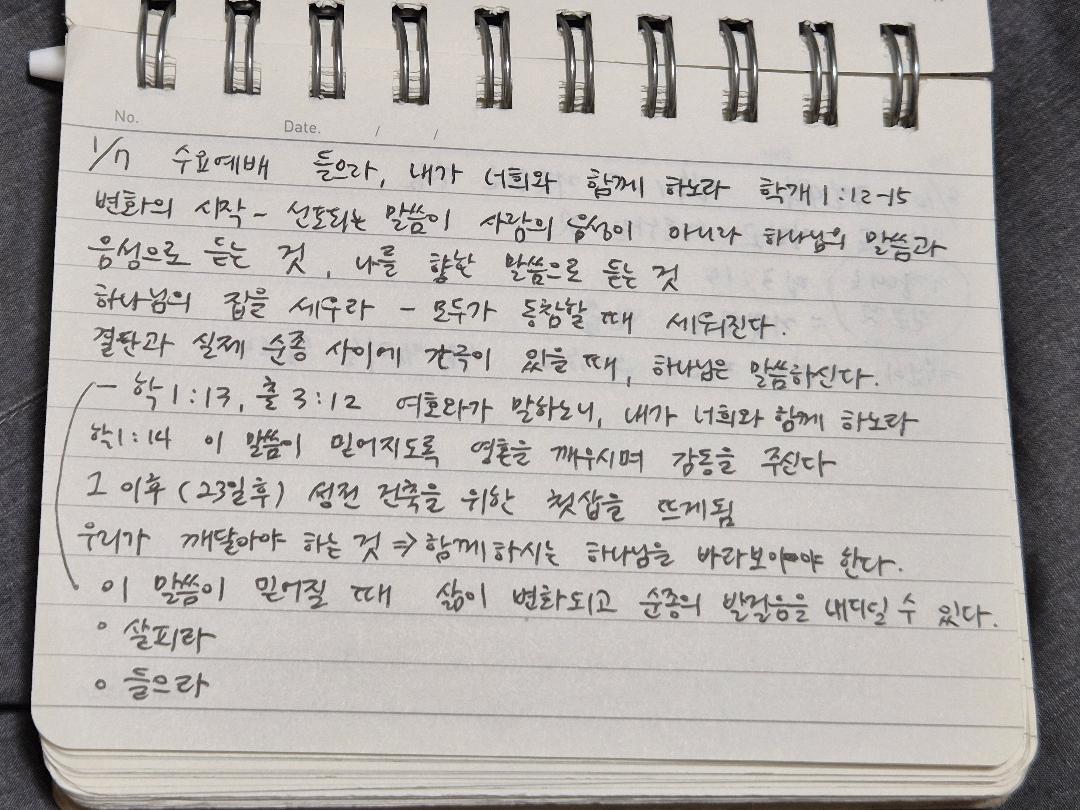 No.
Date. / /
1/7 수요예배 들으라, 내가 너희와 함께 하노라 학개 1:12-15
변화의 시작 - 선포되는 말씀이 사람의 음성이 아니라 하나님의 말씀과
음성으로 듣는 것, 나를 향한 말씀으로 듣는 것
하나님의 집을 세우라 - 모두가 동참할 때 세워진다.
결단과 실제 순종 사이에 간극이 있을 때, 하나님은 말씀하신다.
- 학 1:13, 출 3:12 여호와가 말하노니, 내가 너희와 함께 하노라
학1:14 이 말씀이 믿어지도록 영혼을 깨우시며 감동을 주신다
그 이후 (23일후) 성전 건축을 위한 첫삽을 뜨게됨
우리가 깨달아야 하는 것 => 함께하시는 하나님을 바라보아야 한다.
이 말씀이 믿어질 때 삶이 변화되고 순종의 발걸음을 내디딜 수 있다.
◦ 살피라
◦ 들으라